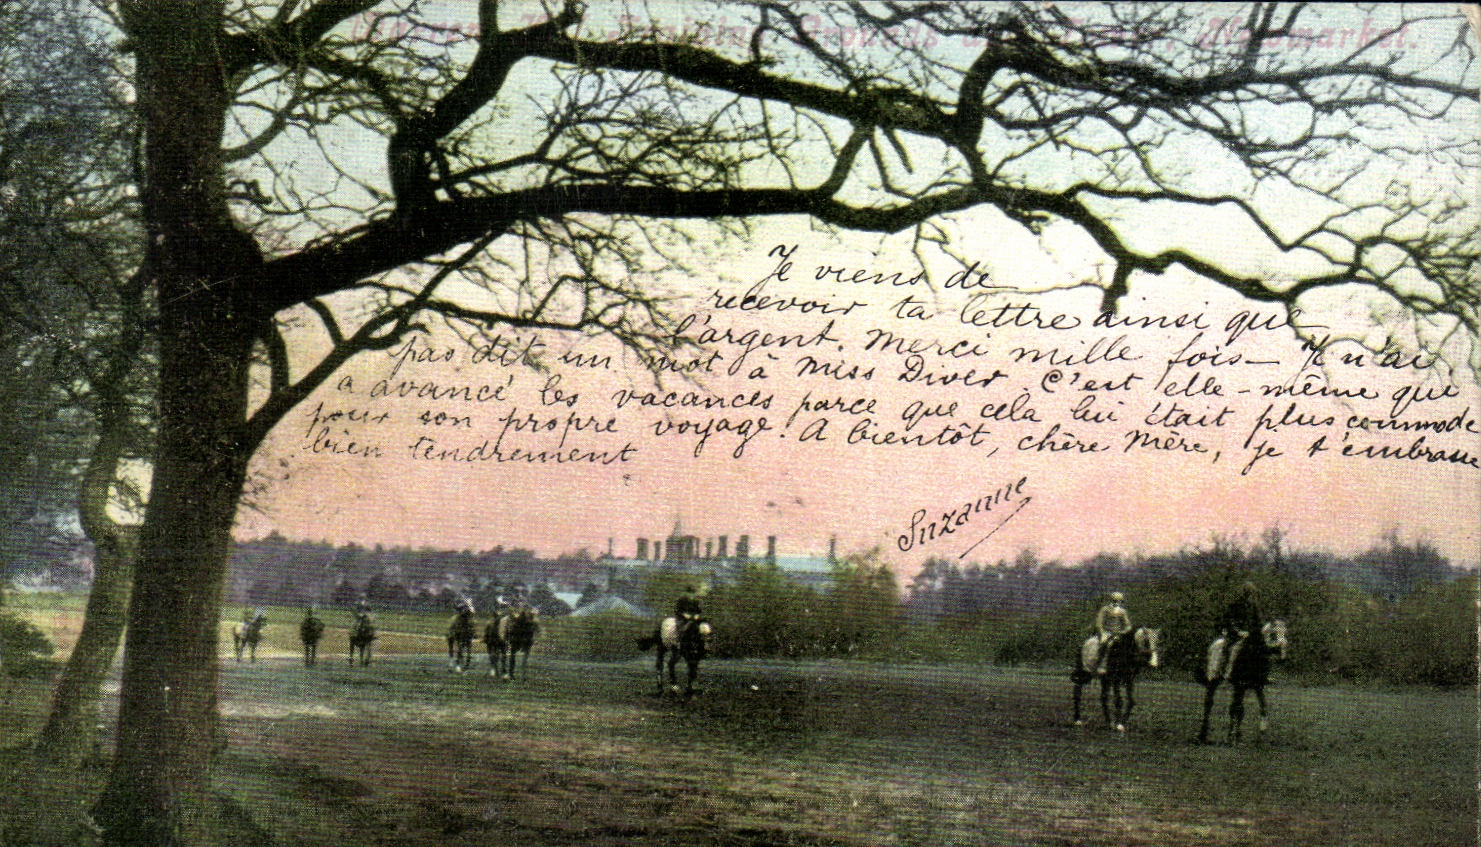 Training Grounds Newmarket.
Je viens de
recevoir ta lettre ainsi que
l'argent. Merci mille fois – Je n'ai
pas dit un mot à Miss Diver. C'est elle-même que
a avancé les vacances parce que cela lui était plus commode
pour son propre voyage. A bientôt, chère Mère, je t'embrasse
bien tendrement
Suzanne